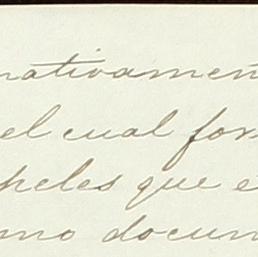 nativamen
el cual for
peles que e
mo docum